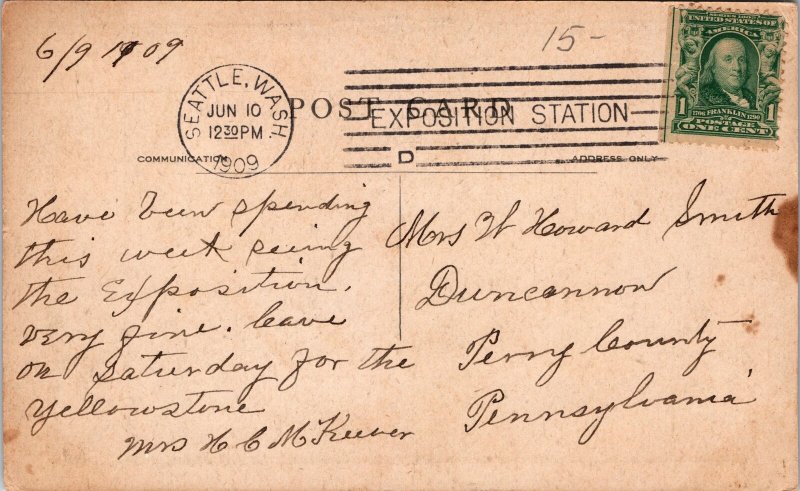 6/9 1909
15-
SEATTLE, WASH.
JUN 10
12 30 PM
1909
POST CARD
EXPOSITION STATION
D
SERIES 1902
UNITED STATES OF
AMERICA
1706 FRANKLIN 1790
1 POSTAGE 1
ONE CENT
COMMUNICATION
ADDRESS ONLY
Have been spending
this week seeing
the Exposition.
very fine. leave
on Saturday for the
Yellowstone
Mrs H C McKeever
Mrs W Howard Smith
Duncannon
Perry County
Pennsylvania